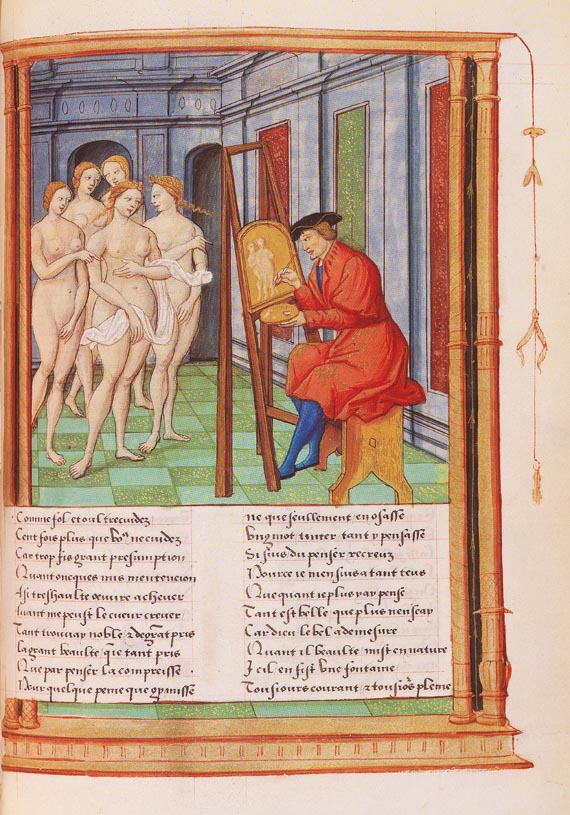 Comme fol et oultrecuidez
Cent fois plus que vo9 ne cuidez
Car trop fis grant presumption
Quant oncques mis mentencion
A si treshaulte oeuvre achever
Avant me peust le cueur crever
Tant trouvay noble & de grāt pris
La grant beaulte que tant pris
Que par penser la compreisse
Pour quelque peine que g meisse
ne que seullement en osasse
Ung mot tinter tant y pensasse
Si suis du penser recreuz
Pource ie men suis a tant teus
Que quant ie plus y ay pense
Tant est belle que plus nen scay
Car dieu le bel a demesure
Quant il beaulte mist en nature
Il en fist une fontaine
Tousiours courant & tousiors pleine